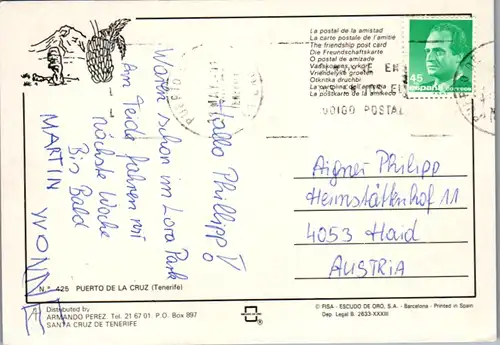 La postal de la amistad
La carte postale de l'amitié
The friendship post card
Die Freundschaftskarte
O postal de amizade
Vriendelyke groeten
Otkritka druchbi
La cartolina dell'amicizia
La postkarto de la amikeco
45
España
CORREOS
POSTAL
Hallo Phillipp!
Waren schon im Loro Park
Am Teide fahren wir
nächste Woche
Bis Bald
MARTIN YVONNE
Aigner Philipp
Heimstättenhof 11
4053 Haid
AUSTRIA
N.º 425 PUERTO DE LA CRUZ (Tenerife)
Distributed by
ARMANDO PEREZ. Tel. 21 67 01: P.O. Box 897
SANTA CRUZ DE TENERIFE
®
© FISA - ESCUDO DE ORO, S.A. - Barcelona - Printed in Spain
Dep. Legal B. 2633-XXXIII